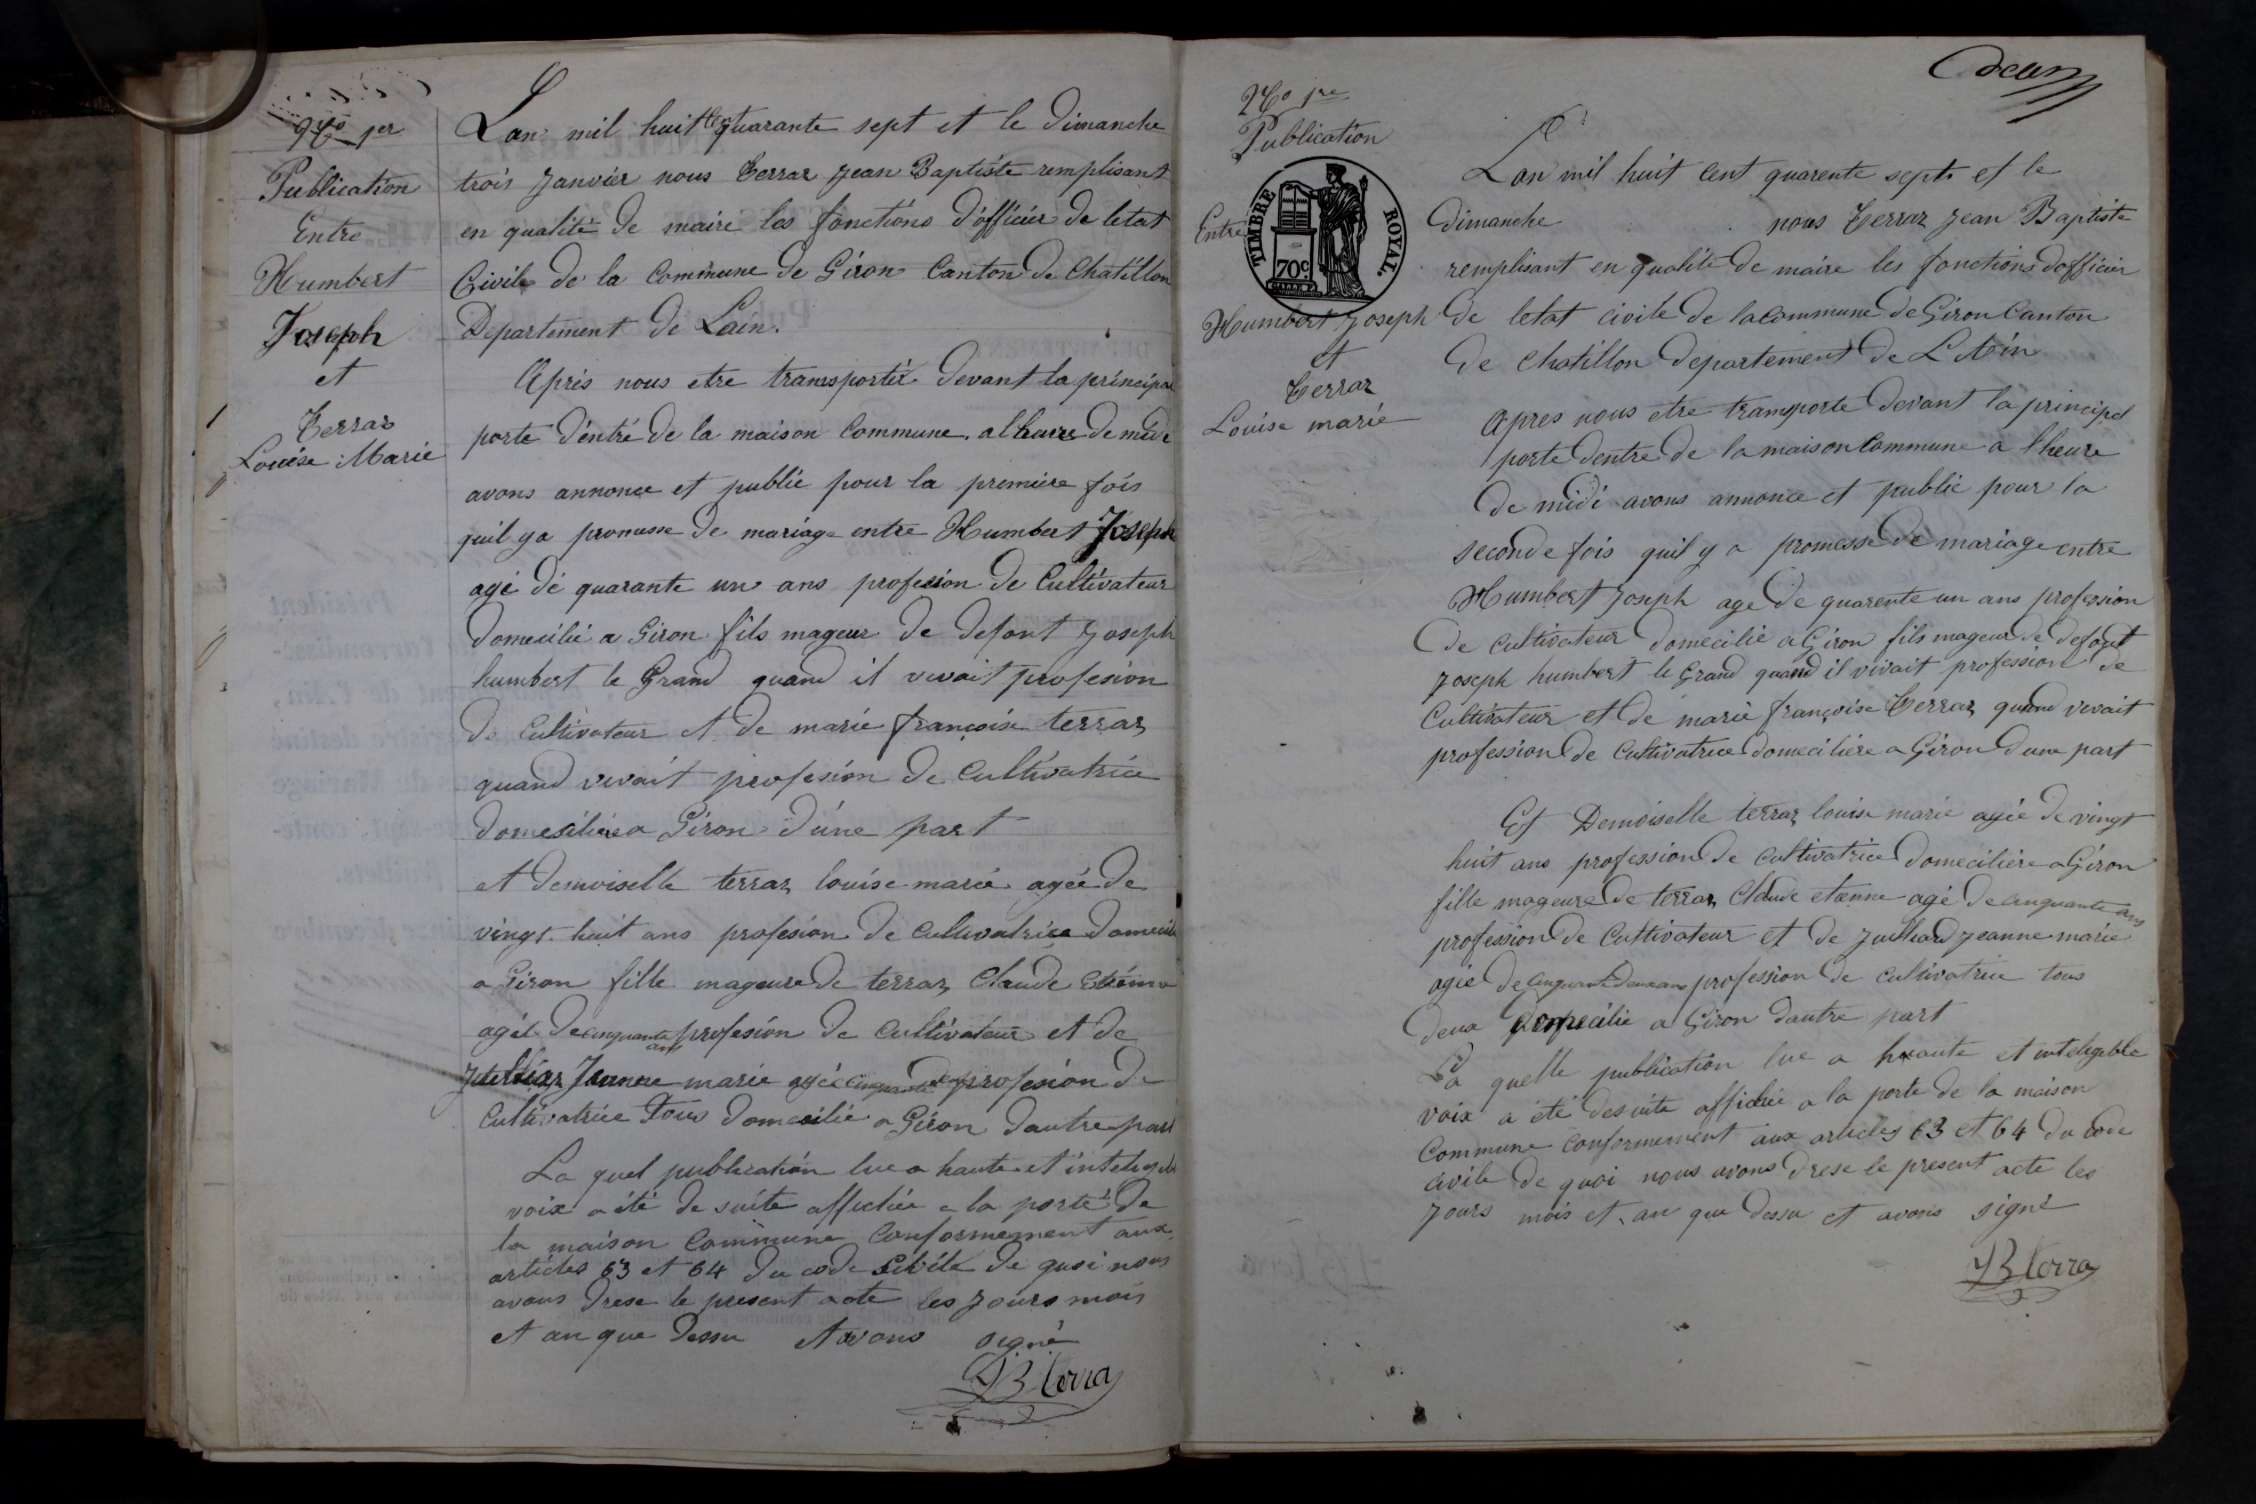 No 1er
Publication
Entre
Humbert
Joseph
et
Terraz
Louise Marie
Lan mil huit Ct quarante sept et le dimanche
trois Janvier nous Terraz Jean Baptiste remplisant
en qualité de maire les fonctions d'officier de letat
Civile de la Commune de Giron Canton de Chatillon
Departement de Lain.
Apres nous etre transportée devant la principal
porte d'entré de la maison Commune, alheure de midi
avons annonce et publié pour la premiere fois
quil ya promesse de mariage entre Humbert Joseph
agé de quarante un ans profesion de Cultivateur
domecilié a Giron fils mageur de defont Joseph
humbert le Grand quand il vivait profesion
de Cultivateur et de marie françoise terraz
quand vivait profesion de Cultivatrice
domeciliere a Giron d'une part
et demoiselle terraz louise marie agée de
vingt huit ans profesion de Cultivatrice domecile
a Giron fille mageure de terraz Claude Etienne
agé de cinquante ans profesion de Cultivateur et de
Jeanne marie agée cinquante deux profesion de
Cultivatrice Tous domecilié a Giron dautre part
La quel publication lue a haute et inteligeble
voix a été de suite affichée a la porte de
la maison Commune Conformement aux
articles 63 et 64 du code Civile de quoi nous
avons drese le present acte les Jours mois
et an que dessu et avons signé
JB Terraz
deux
No 1re
Publication
Entre
Humbert Joseph
et
Terraz
Louise marie
TIMBRE ROYAL.
70c
Lan mil huit Cent quarente sept et le
dimanche nous Terraz Jean Baptiste
remplisant en qualité de maire les fonctions dofficier
de letat civile de la Commune de Giron Canton
de Chatillon departement de L Ain
Apres nous etre transporte devant la principal
porte dentre de la maison Commune a lheure
de midi avons annonce et publie pour la
seconde fois quil y a promesse de mariage entre
Humbert Joseph age de quarente un ans profession
de cultivateur domecilié a Giron fils mageur de defont
Joseph humbert le Grand quand il vivait profession de
Cultivateur et de marie françoise Terraz quand vivait
profession de Cultivatrice domeciliere a Giron dune part
Et Demoiselle terraz louise marie agée de vingt
huit ans profession de Cultivatrice domeciliere a Giron
fille mageure de terraz Claude etienne agé de cinquante ans
profession de Cultivateur et de Julliard Jeanne marie
agée de cinquante deux ans profession de cultivatrice tous
deux domecilié a Giron dautre part
La quelle publication lue a haute et inteligeble
voix a été desuite affichée a la porte de la maison
Commune Conformement aux articles 63 et 64 du Code
civile de quoi nous avons drese le present acte les
Jours mois et an que dessu et avons signé
JB Terraz